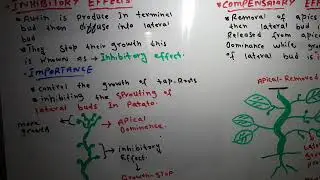 INHIBITORY EFFECTS
Auxin is produce In terminal
bud then diffuse into lateral
bud
They stop their growth this
is known as → Inhibitory effect.
IMPORTANCE
control the growth of tap-Roots
inhibiting the sprouting of
lateral buds In Patato.
more growth
Apical
Dominance.
inhibitory
Effect.
Growth-stop
COMPENSATORY EFFECT
Removal of apical
then lateral bud
Released from apical
Dominance while growth
of lateral bud is
Apical-Removed